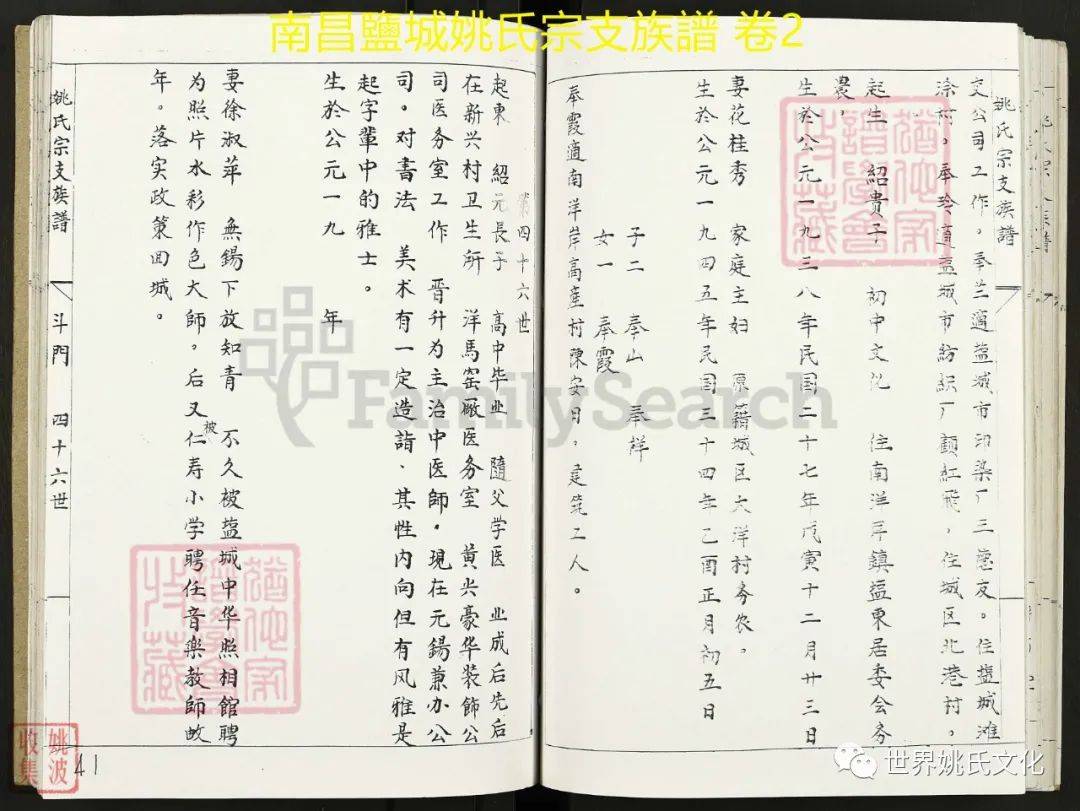 南昌鹽城姚氏宗支族譜 卷2
姚氏宗支族譜
文公司工作。奉兰適盐城市印染厂三 友。住盐城滩
涂村。奉玲適盐城市紡織厂顧紅飛，住城区北港村。
起生 紹貴子 初中文化 住南洋岸鎮盐東居委会务
農。
生於公元一九三八年民国二十七年戊寅十二月廿三日
妻花桂秀 家庭主妇 原籍城区大洋村务农。
生於公元一九四五年民国三十四年乙酉正月初五日
子二 奉山 奉祥
女一 奉霞
奉霞適南洋岸高産村陳安月，建筑工人。
第四十六世
起東 紹元長子 高中毕业 隨父学医 业成后先后
在新兴村卫生所 洋馬窑廠医务室 黄尖豪华装飾公
司医务室工作 晋升为主治中医師。現在元錫兼办公
司。对書法 美术有一定造詣、其性内向但有风雅是
起字輩中的雅士。
生於公元一九 年
妻徐淑萍 無錫下放知青 不久被盐城中华照相館聘
为照片水彩作色大師。后又被仁寿小学聘任音樂教師故
年。落实政策回城。
姚氏宗支族譜
斗門
四十六世
41
猶他家譜學會收藏
猶他家譜學會收藏
FamilySearch
姚波收集
世界姚氏文化